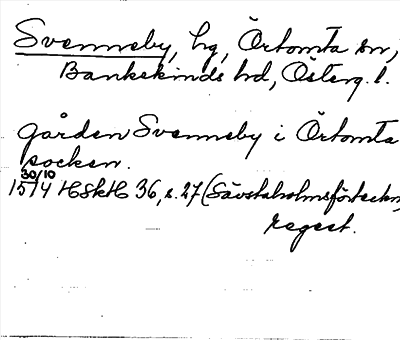 Svenneby, hg, Örtomta sn,
Bankekinds hd, Österg. l.
gården Svenneby i Örtomta
socken.
30/10
1514 HSkH 36, s. 27 (Säystaholmsförteckn,
regest.